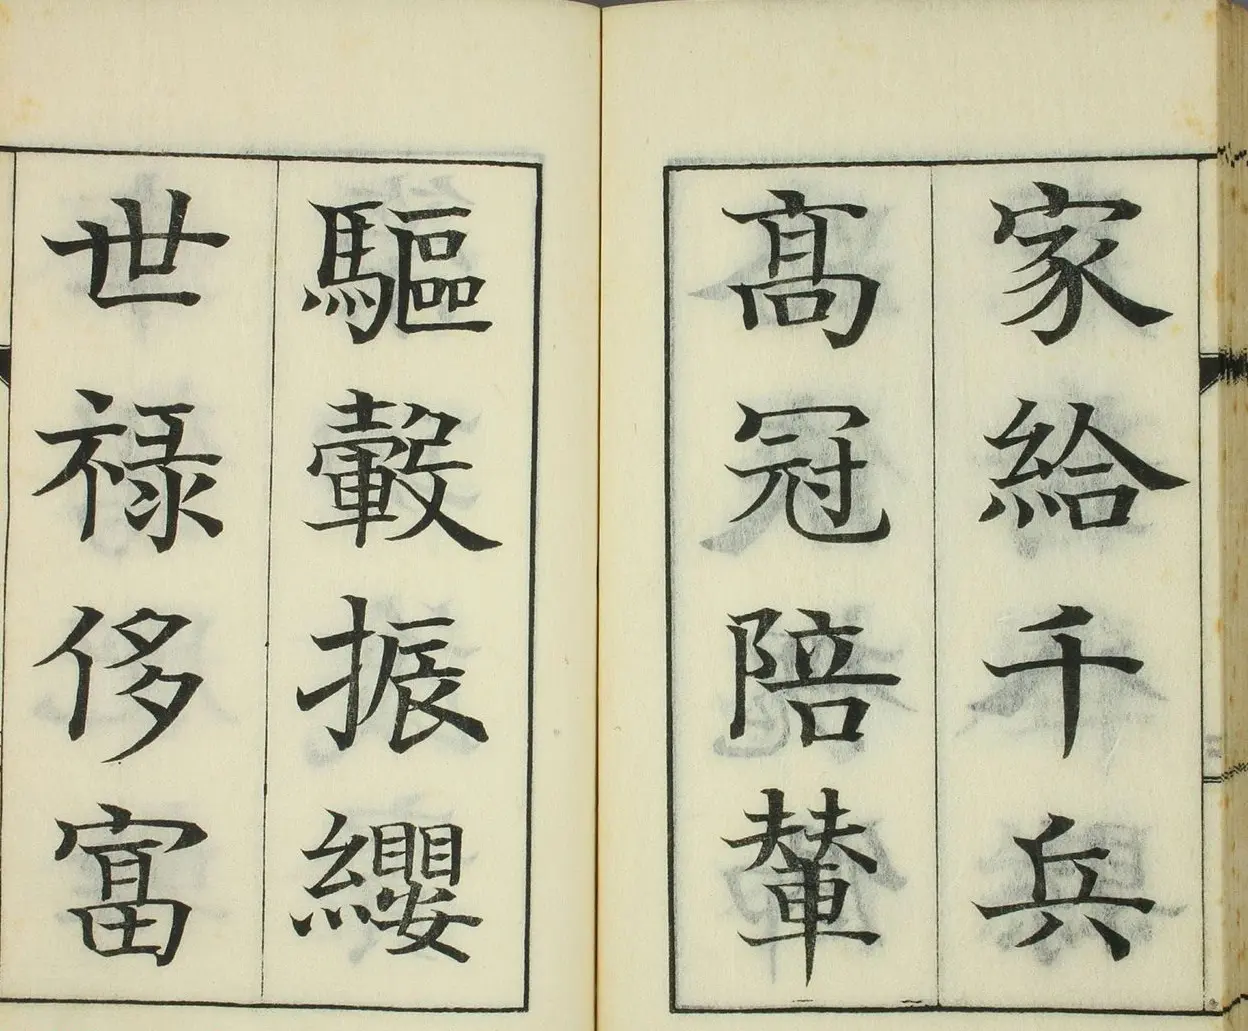 家給千兵
髙冠陪輦
驅轂振纓
世禄侈富